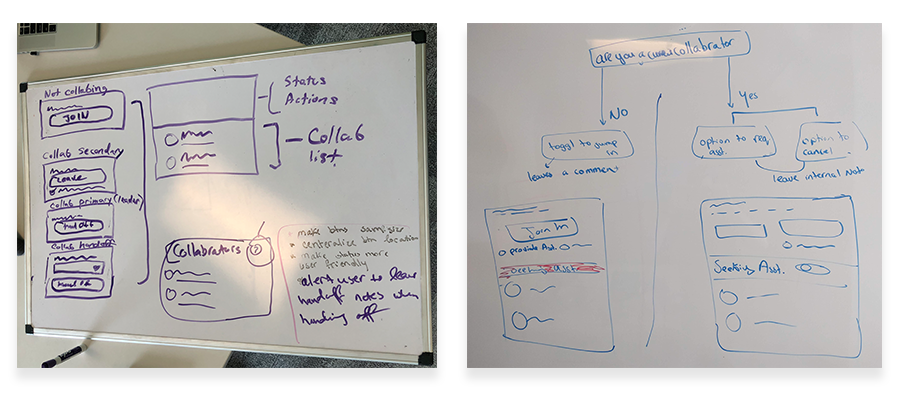 Not collabing
JOIN
Collab Secondary
Leave
Collab primary (leader)
Hand off
Collab handoff
Hand off
Status
Actions
Collab
list
Collabrators
make btns
centeralize btn location
make status more
user friendly
alert user to leave
handoff notes when
handing off
are you a current collabrator
NO
Yes
toggl to jump
in
leaves a comment
option to req
asst.
option to
cancel
leave internal Not
Join In
provide Asst.
Seeking Asst.